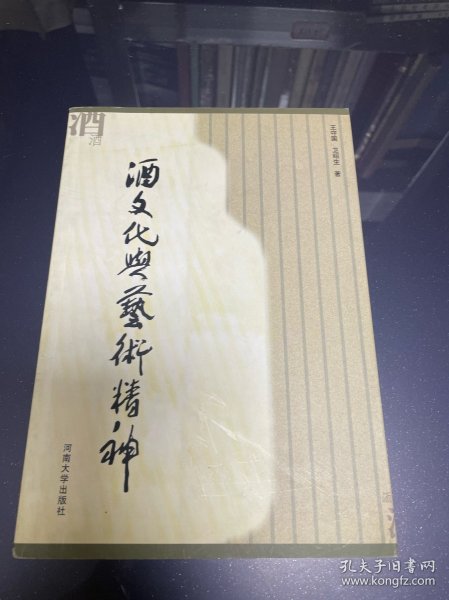 酒
酒
王守国 卫绍生 著
酒文化與藝術精神
河南大学出版社
酒
孔夫子旧书网
www.kongfz.com